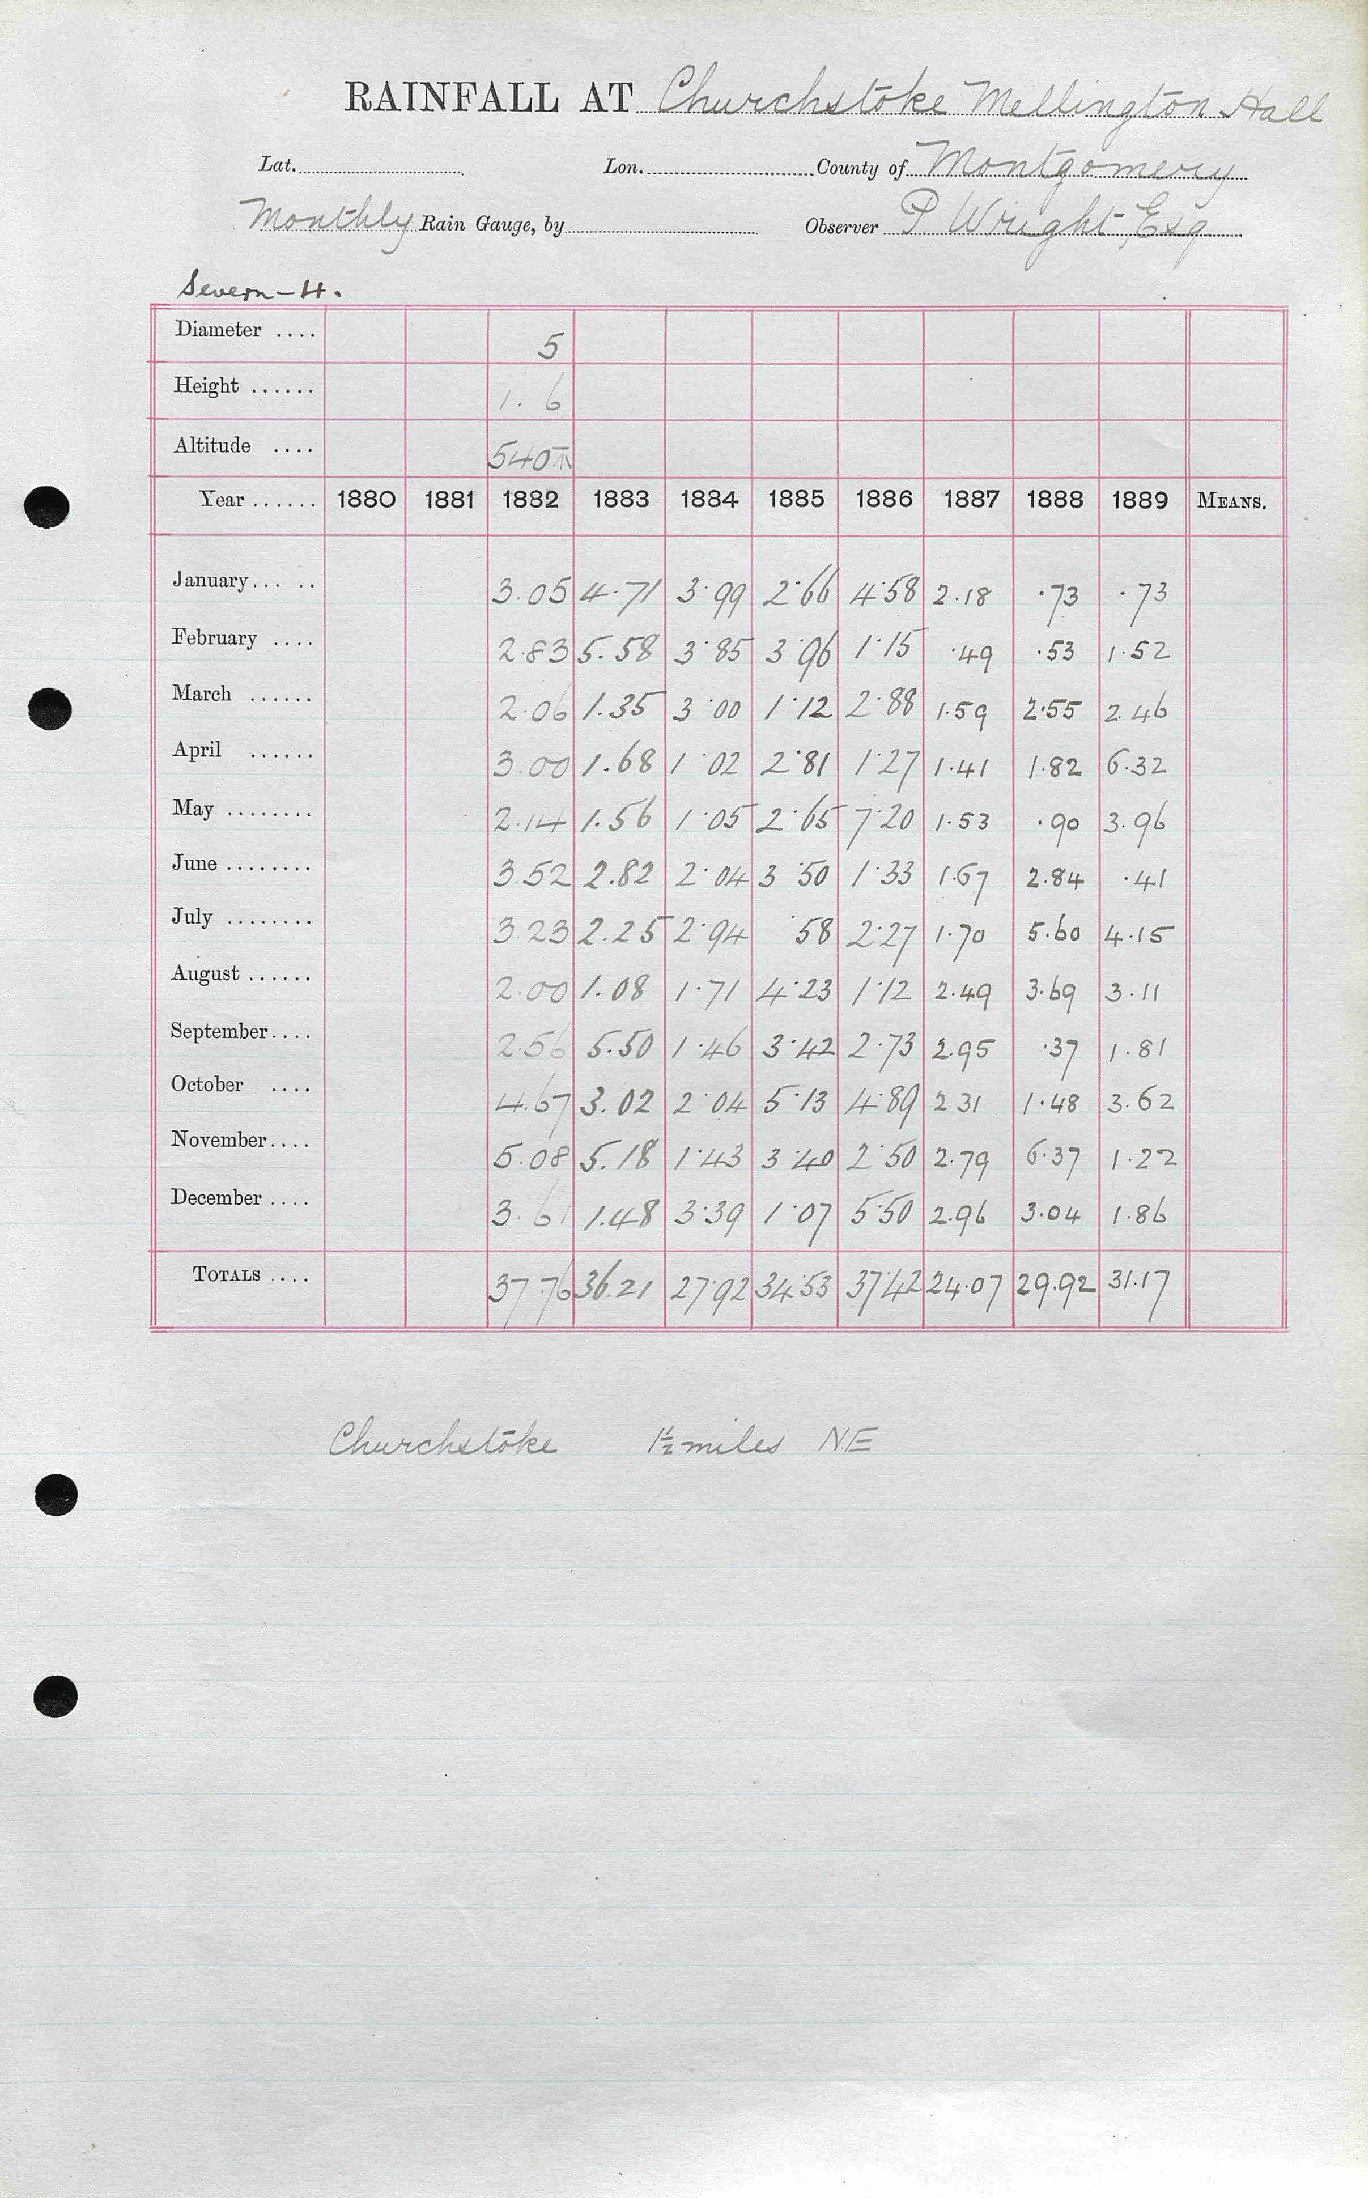 RAINFALL AT Churchstoke Mellington Hall
Lat. Lon. County of Montgomery
Monthly Rain Gauge, by Observer P Wright Esq
Severn - H.
Diameter .... 5
Height ...... 1. 6
Altitude .... 540
Year ...... 1880 1881 1882 1883 1884 1885 1886 1887 1888 1889 MEANS.
January... .. 3.05 4.71 3.99 2.66 4.58 2.18 .73 .73
February .... 2.83 5.58 3.85 3.96 1.15 .49 .53 1.52
March ...... 2.06 1.35 3.00 1.12 2.88 1.59 2.55 2.46
April ...... 3.00 1.68 1.02 2.81 1.27 1.41 1.82 6.32
May ........ 2.14 1.56 1.05 2.65 7.20 1.53 .90 3.96
June ........ 3.52 2.82 2.04 3.50 1.33 1.67 2.84 .41
July ........ 3.23 2.25 2.94 .58 2.27 1.70 5.60 4.15
August ...... 2.00 1.08 1.71 4.23 1.12 2.49 3.69 3.11
September.... 2.56 5.50 1.46 3.42 2.73 2.95 .37 1.81
October .... 4.67 3.02 2.04 5.13 4.89 2 31 1.48 3.62
November.... 5.08 5.18 1.43 3.40 2.50 2.79 6.37 1.22
December .... 3.61 1.48 3.39 1.07 5.50 2.96 3.04 1.86
TOTALS .... 37.76 36.21 27.92 34.53 37.42 24.07 29.92 31.17
Churchstoke 1½ miles NE